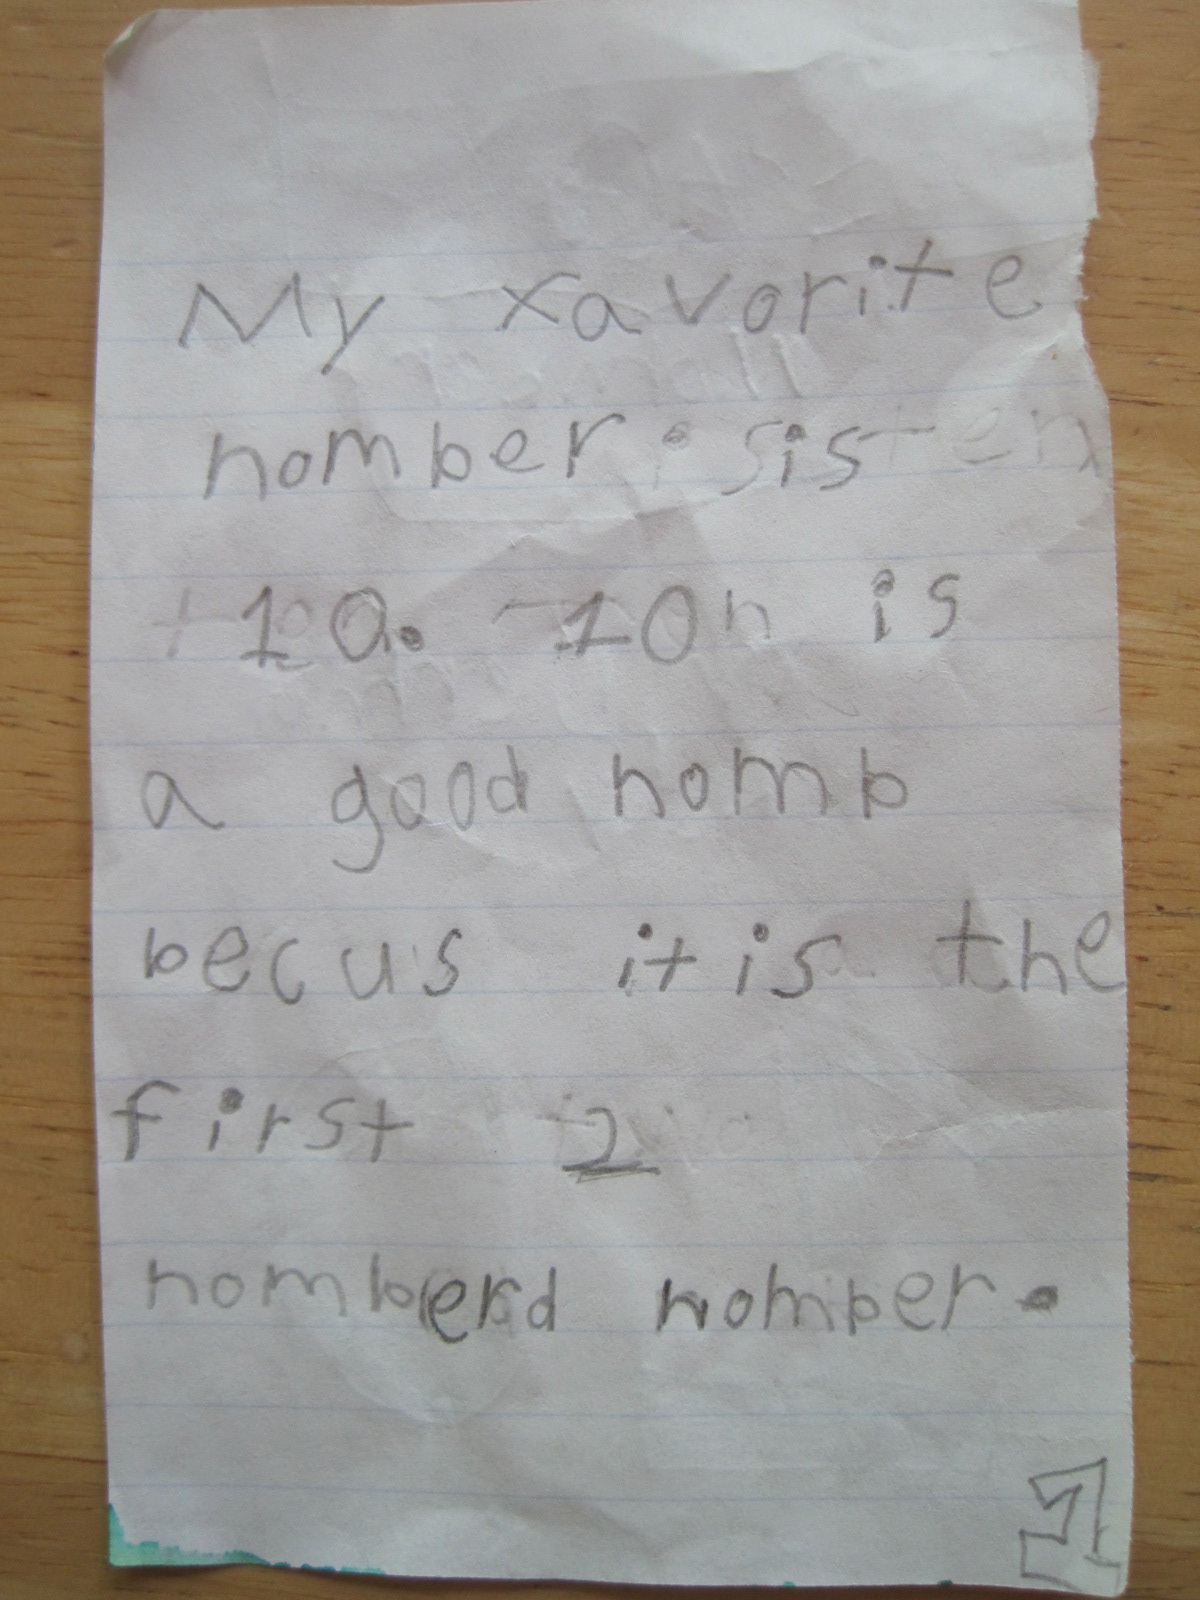 My xavorite
nomber is
10. 10 is
a good nomb
becus it is the
first 2
nomberd nomber.
1